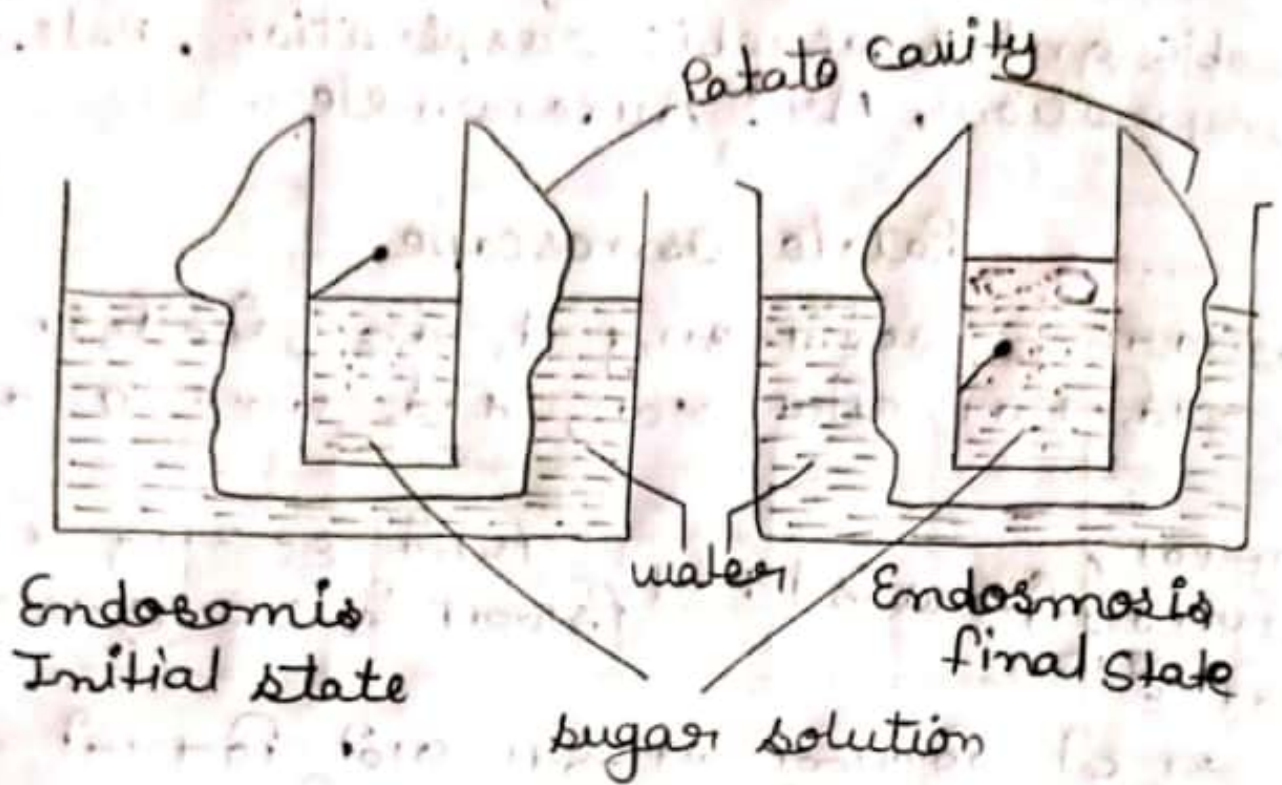 Potato cavity
water
Endosomis
Initial state
Endosmosis
final State
sugar solution